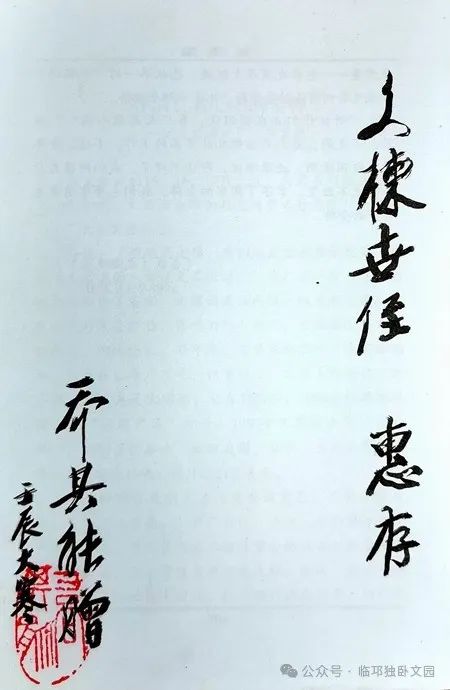 文棟世侄 惠存
乔其能赠
壬辰大寒
公众号 · 临邛独卧文园